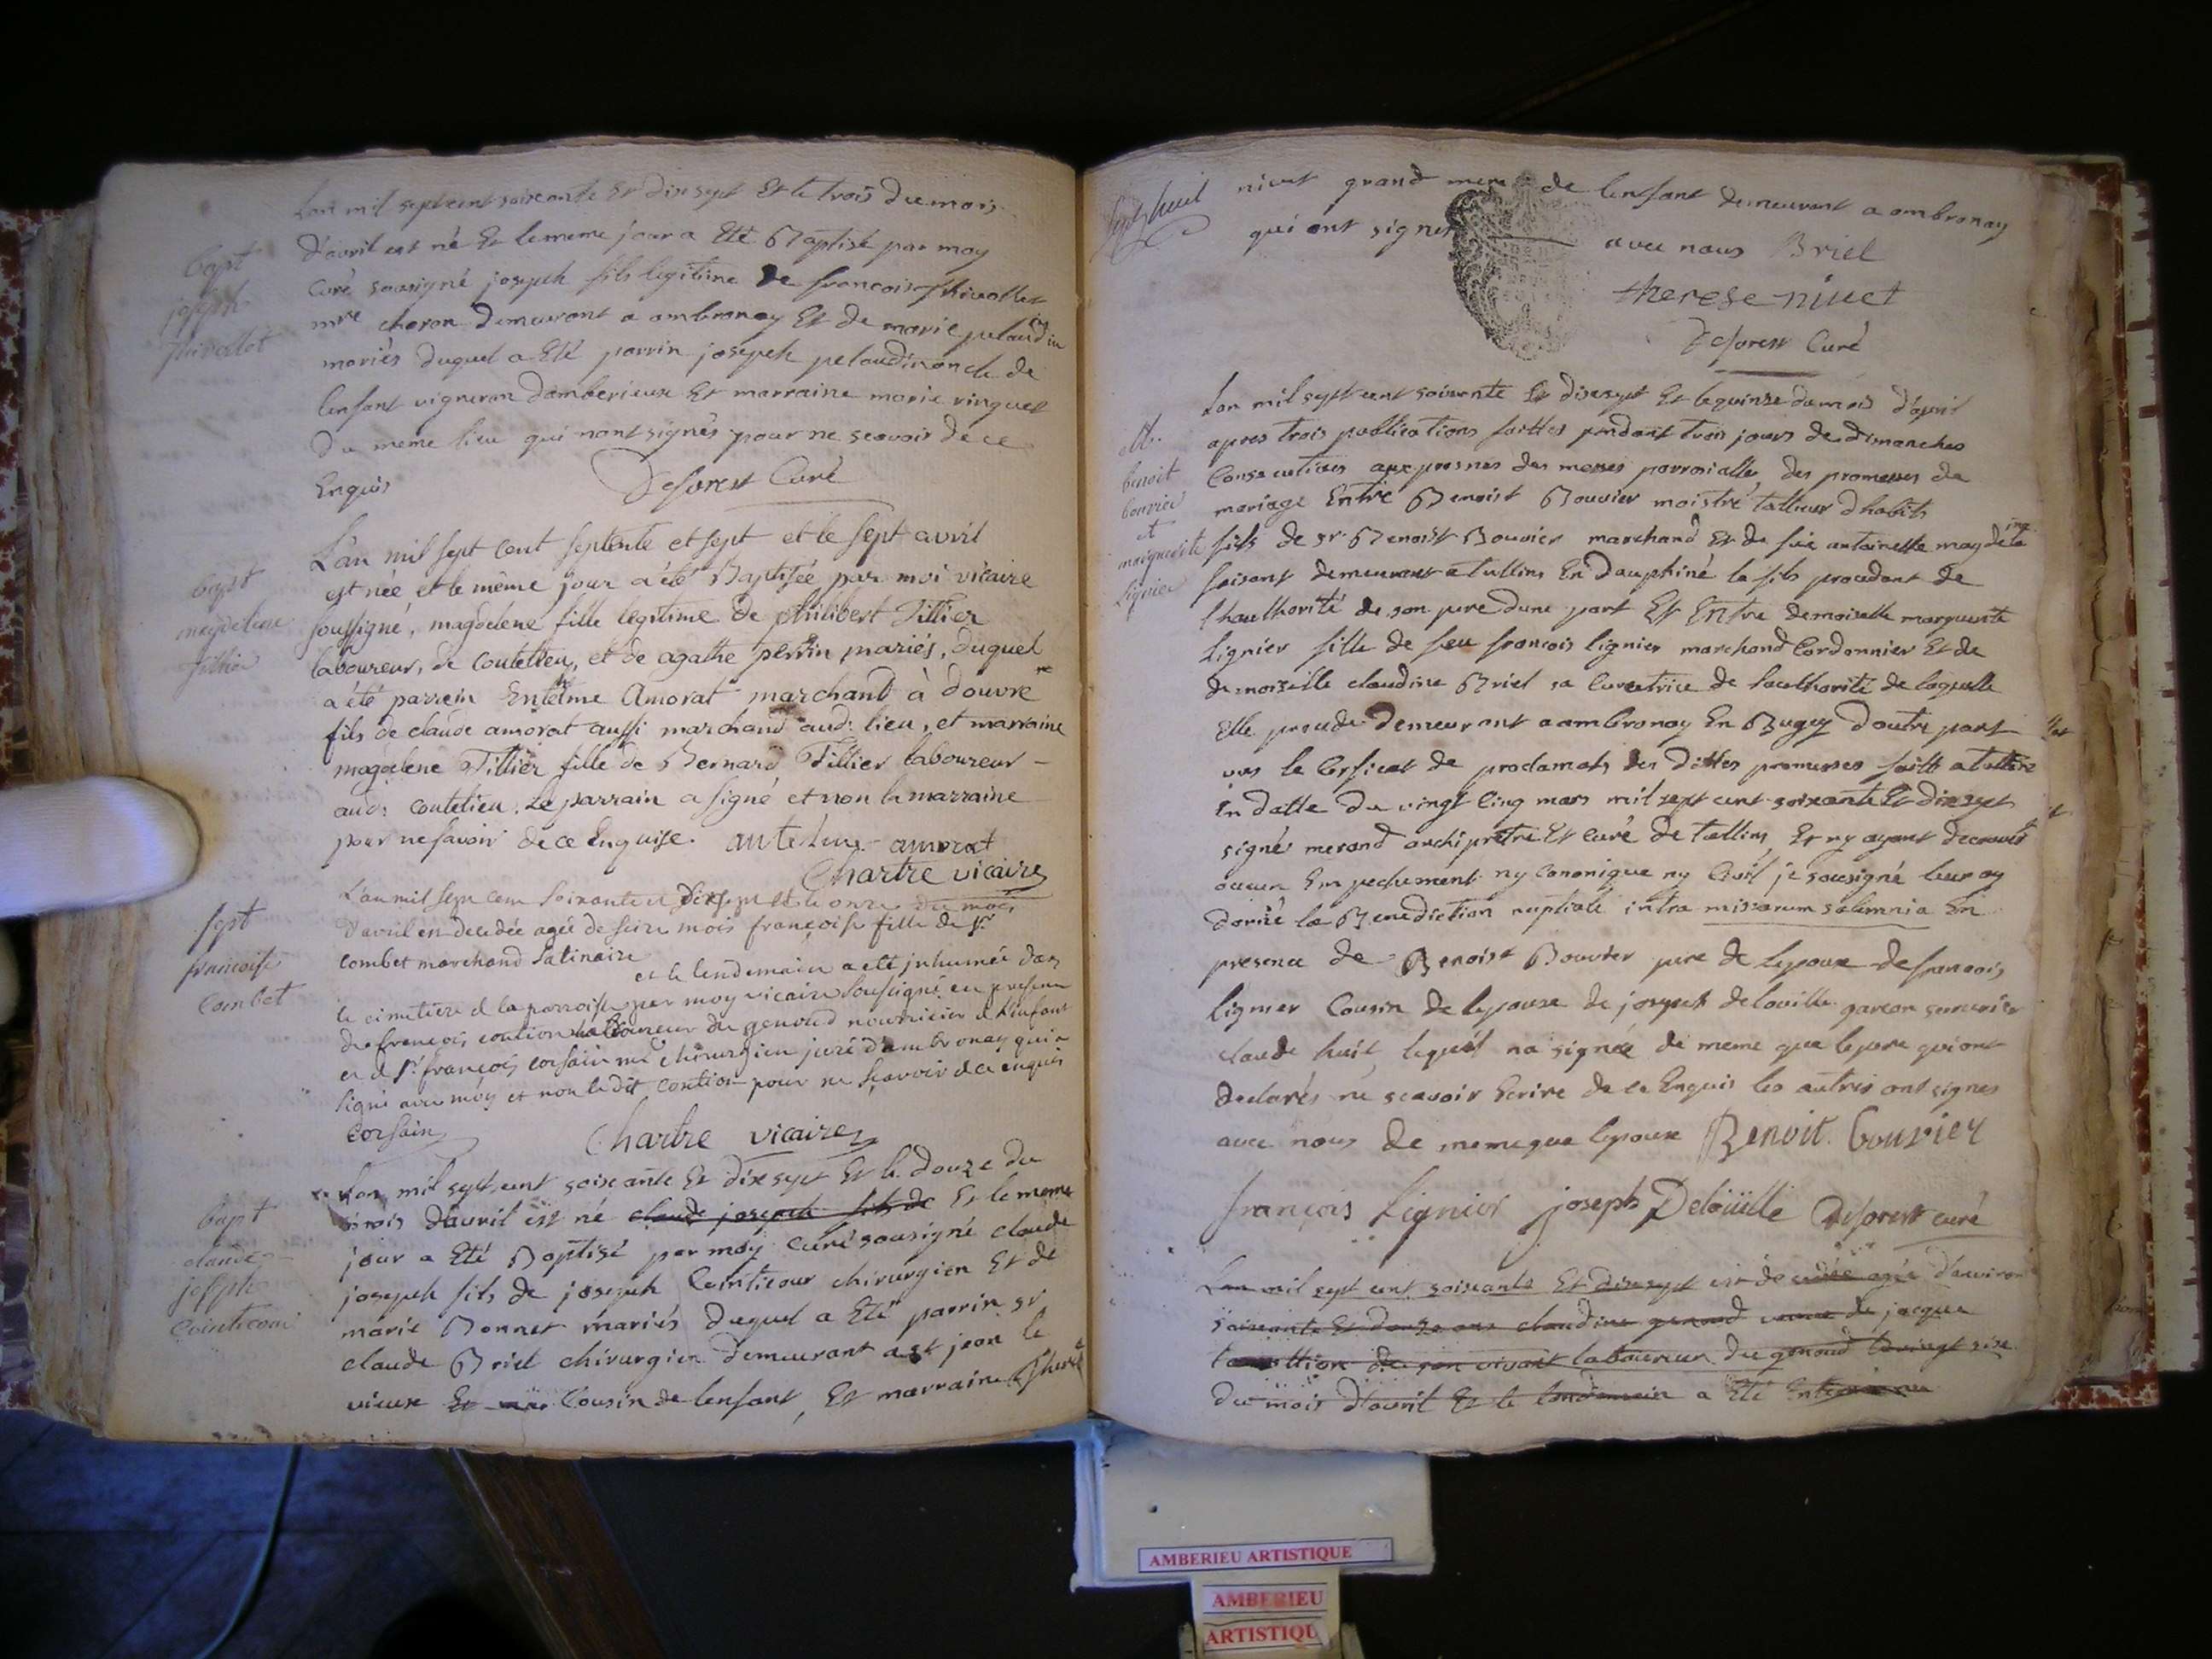 Lan mil sept cent soixante Et dix sept Et le trois du mois
bapt
joseph
thivollet
d'avril est né Et le meme jour a Eté Baptisé par moy
Curé sousigné joseph fils legitime de francois thivollet
mtre charon demeurant a ambronay Et de marie pelaudin
mariés duquel a Eté parrin joseph pelaudin oncle de
lenfant vigneron damberieux Et marraine marie ringuet
du meme lieu qui nont signés pour ne scavoir de ce
Enquis Desforest Curé
bapt
magdelene
tillier
L'an mil sept cent septente et sept et le sept avril
est née et le même jour a été Baptisée par moi vicaire
soussigné, magdelene fille legitime de philibert Tillier
laboureur, de coutelieu, et de agathe perrin mariés, duquel
a été parrein Entelme Amorat marchand à douvre
fils de claude amorat aussi marchand aud: lieu, et marraine
magdelene Tillier fille de Bernard Tillier laboureur -
aud: coutelieu. Le parrain a signé et non la marraine
pour ne savoir de ce Enquise. antelme amorat
Chartre vicaire
sept
francoise
Combet
L'an mil sept cent soixante et dix sept et le onze du mois
d'avril est decedée agée de seize mois françoise fille de Sr
combet marchand satinaire
et le lendemain a eté inhumée dans
le cimetiere de la parroisse par moy vicaire soussigné en presence
de françois contion laboureur du genoud nourricier de l'enfant
et de Sr françois corsain me chirurgien juré d'ambronay qui a
signé avec moy et non le dit contion pour ne sçavoir de ce enquis
Corsain Chartre vicaire
bapt
claude
joseph
Cointicour
Lan mil sept cent soixante Et dix sept Et le douze du
mois d'avril est né claude joseph fils de Et le meme
jour a Eté Baptisé par moy curé sousigné claude
joseph fils de joseph Cointicour chirurgien Et de
marie Bonnet mariés duquel a Eté parrin sr
claude Briel chirurgien demeurant a st jean le
vieux Et Cousin de lenfant, Et marraine
nivet grand mere de lenfant demeurant a ambronay
qui ont signés avec nous Briel
therese nivet
Desforest Curé
benoit
bouvier
et
marguerite
Lignier
Lan mil sept cent soixante Et dix sept Et le quinze du mois d'avril
apres trois publications faittes pendant trois jours de dimanches
Consecutives aux prosnes des messes parrosialles des promesses de
mariage Entre Benoist Bouvier maistre tallieur dhabits
fils de sr Benoist Bouvier marchand Et de feue antoinette magdeleine
faisant demeurant a tullins En dauphiné le fils procedant de
lhauthorité de son pere dune part Et Entre demoiselle marguerite
Lignier fille de feu francois lignier marchand Cordonnier Et de
demoiselle claudine Briel sa Curatrice de lauthorité de laquelle
Elle procede demeurant a ambronay En Bugey doutre part
vus le Certificat de proclamats des dittes promesses faitt a tullins
En datte du vingt Cinq mars mil sept cent soixante Et dix sept
signés merand archipretre Et curé de tullins Et ny ayant decouvert
aucun Empechement ny Cononique ny Civil je sousigné leur ay
donné la Benediction nuptiale intra missarum solemnia En
presence de Benoist Bouvier pere de lepoux de francois
lignier Cousin de lepouse de joseph delouille garcon serrurier
claude huit lequel na signée de meme que le pere qui ont
declarés ne scavoir Ecrire de ce Enquis les autres ont signes
avec nous de meme que lepoux Benoit bouvier
françois Lignier joseph Deloüille Desforest curé
Lan mil sept cent soixante Et dix sept est decedée agée d'environ
soixante Et douze ans claudine genoud veuve de jacque
de son vivant laboureur du genoud le vingt sixe
du mois d'avril Et le lendemain a Eté
AMBERIEU ARTISTIQUE
AMBERIEU
ARTISTIQU